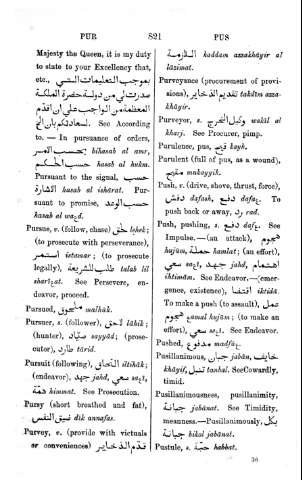 PUR 821 PUS
Majesty the Queen, it is my duty
to state to your Excellency that,
etc., بموجب التعليمات التـي
صدرت لي من دولـة حضرة الملكـة
المعظمة من الواجب علي ان اقدّم
لسعادتكم بان الخ. See According
to. — In pursuance of orders,
بحسب الامر bihasab al amr,
حسب الحكم hasab al hukm.
Pursuant to the signal, حسب
الاشارة hasab al ishârat. Pur-
suant to promise, حسب الوعد
hasab al waʿd.
Pursue, v. (follow, chase) لحق leḥek;
(to prosecute with perseverance),
استمر istemar; (to prosecute
legally), طلب للشريعة talab lil
sharîʿat. See Persevere, en-
deavor, proceed.
Pursued, ملحوق malhûk.
Pursuer, s. (follower), لاحق lâhik;
(hunter), صيّاد sayyâd; (prose-
cutor), طارد târid.
Pursuit (following), التحاق iltihâk;
(endeavor), جهد jahd, سعي saʿî,
همّة himmat. See Prosecution.
Pursy (short breathed and fat),
ضيق النفس dîk annafas.
Purvey, v. (provide with victuals
or conveniences) قدّم الذخاير
اللازمة kaddam azzakhâyir al
lâzimat.
Purveyance (procurement of provi-
sions), تقديم الذخاير takdîm azza-
khâyir.
Purveyor, s. وكيل الخرج wakîl al
kharj. See Procurer, pimp.
Purulence, pus, قيح kayh.
Purulent (full of pus, as a wound),
مقيّح makayyih.
Push, v. (drive, shove, thrust, force),
دفش dafash, دفع dafaʿ. To
push back or away, ردّ rad.
Push, pushing, s. دفع dafʿ. See
Impulse. — (an attack), هجوم
hujûm, حملة hamlat; (an effort),
سعي saʿî, جهد jahd, اهتمام
ihtimâm. See Endeavor. — (emer-
gence, existence), اقتضا iktidâ.
To make a push (to assault), عمل
هجوم ʿamal hujûm; (to make an
effort), سعي saʿî. See Endeavor.
Pushed, مدفوع madfûʿ.
Pusillanimous, جبان jabân, خايف
khâyif, تنبل tanbal. See Cowardly,
timid.
Pusillanimousness, pusillanimity,
جبانة jabânat. See Timidity,
meanness. — Pusillanimously, بكل
جبانة bikal jabânat.
Pustule, s. حبّة habbat.
36